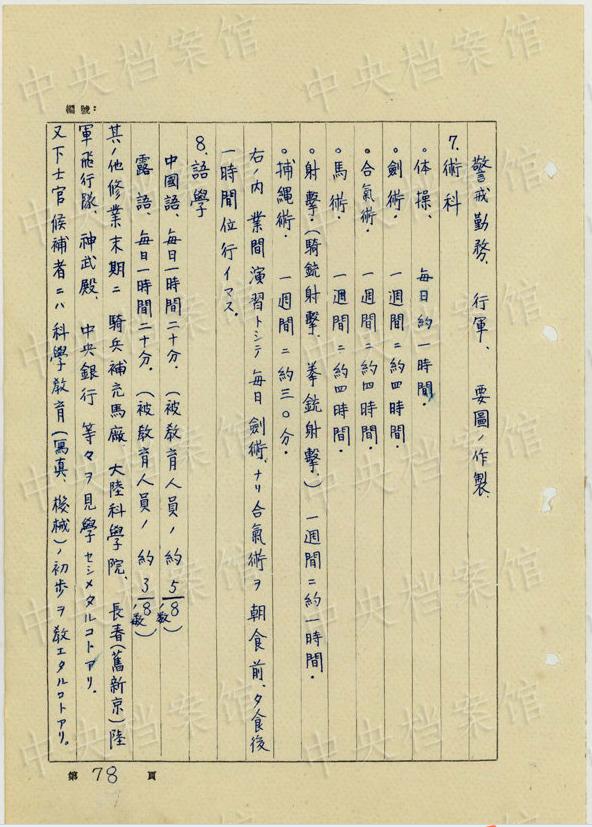 編號：
警戒勤務、行軍、要圖ノ作製、
7. 術科
。体操、 每日約一時間．
。劍術． 一週間ニ約四時間．
。合氣術． 一週間ニ約四時間．
。馬術． 一週間ニ約四時間．
。射擊．（騎銃射擊、拳銃射擊．） 一週間ニ約一時間．
。捕縄術． 一週間ニ約三〇分．
右ノ内 業間演習トシテ每日劍術、ナリ合氣術ヲ朝食前、夕食後
一時間位行イマス．
8. 語學
中國語、每日一時間二十分．（被敎育人員ノ約5/8数）
露語、每日一時間二十分．（被敎育人員ノ約3/8数）
其ノ他修業末期ニ騎兵補充馬廠 大陸科學院、長春（舊新京）陸
軍飛行隊、神武殿、中央銀行等々ヲ見學セシメタルコトアリ．
又下士官候補者ニハ科學敎育（寫真、機械）ノ初歩ヲ敎エタルコトアリ。
第 78 頁
中央档案馆